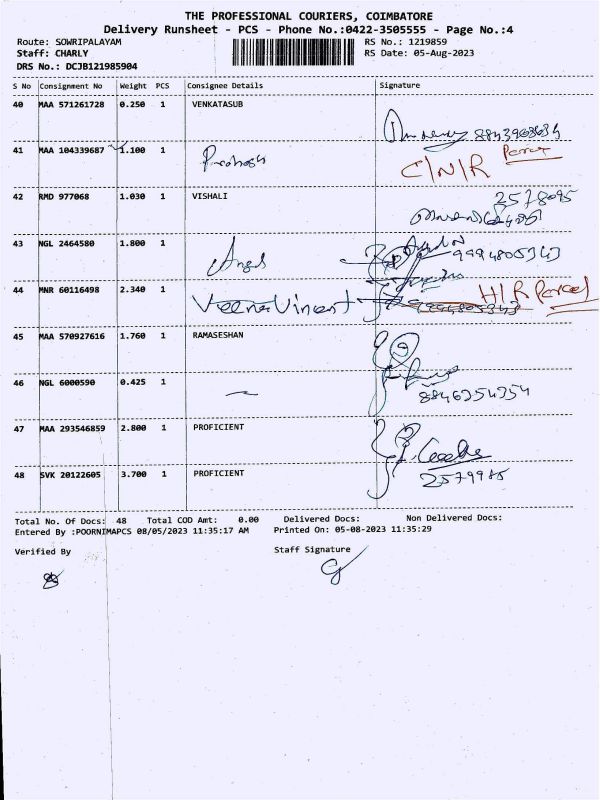 THE PROFESSIONAL COURIERS, COIMBATORE
Delivery Runsheet - PCS - Phone No.:0422-3505555 - Page No.:4
Route: SOWRIPALAYAM RS No.: 1219859
Staff: CHARLY RS Date: 05-Aug-2023
DRS No.: DCJB121985904
S No Consignment No Weight PCS Consignee Details Signature
40 MAA 571261728 0.250 1 VENKATASUB
41 MAA 104339687 1.100 1 Prakash C/N/R
42 RMD 977068 1.030 1 VISHALI 2578095
43 NGL 2464580 1.800 1 Angel 9994805343
44 MNR 60116498 2.340 1 Veena Vincent H/R Parcel
45 MAA 570927616 1.760 1 RAMASESHAN
46 NGL 6000590 0.425 1 8846354354
47 MAA 293546859 2.800 1 PROFICIENT
48 SVK 20122605 3.700 1 PROFICIENT 2579985
Total No. Of Docs: 48 Total COD Amt: 0.00 Delivered Docs: Non Delivered Docs:
Entered By :POORNIMAPCS 08/05/2023 11:35:17 AM Printed On: 05-08-2023 11:35:29
Verified By Staff Signature